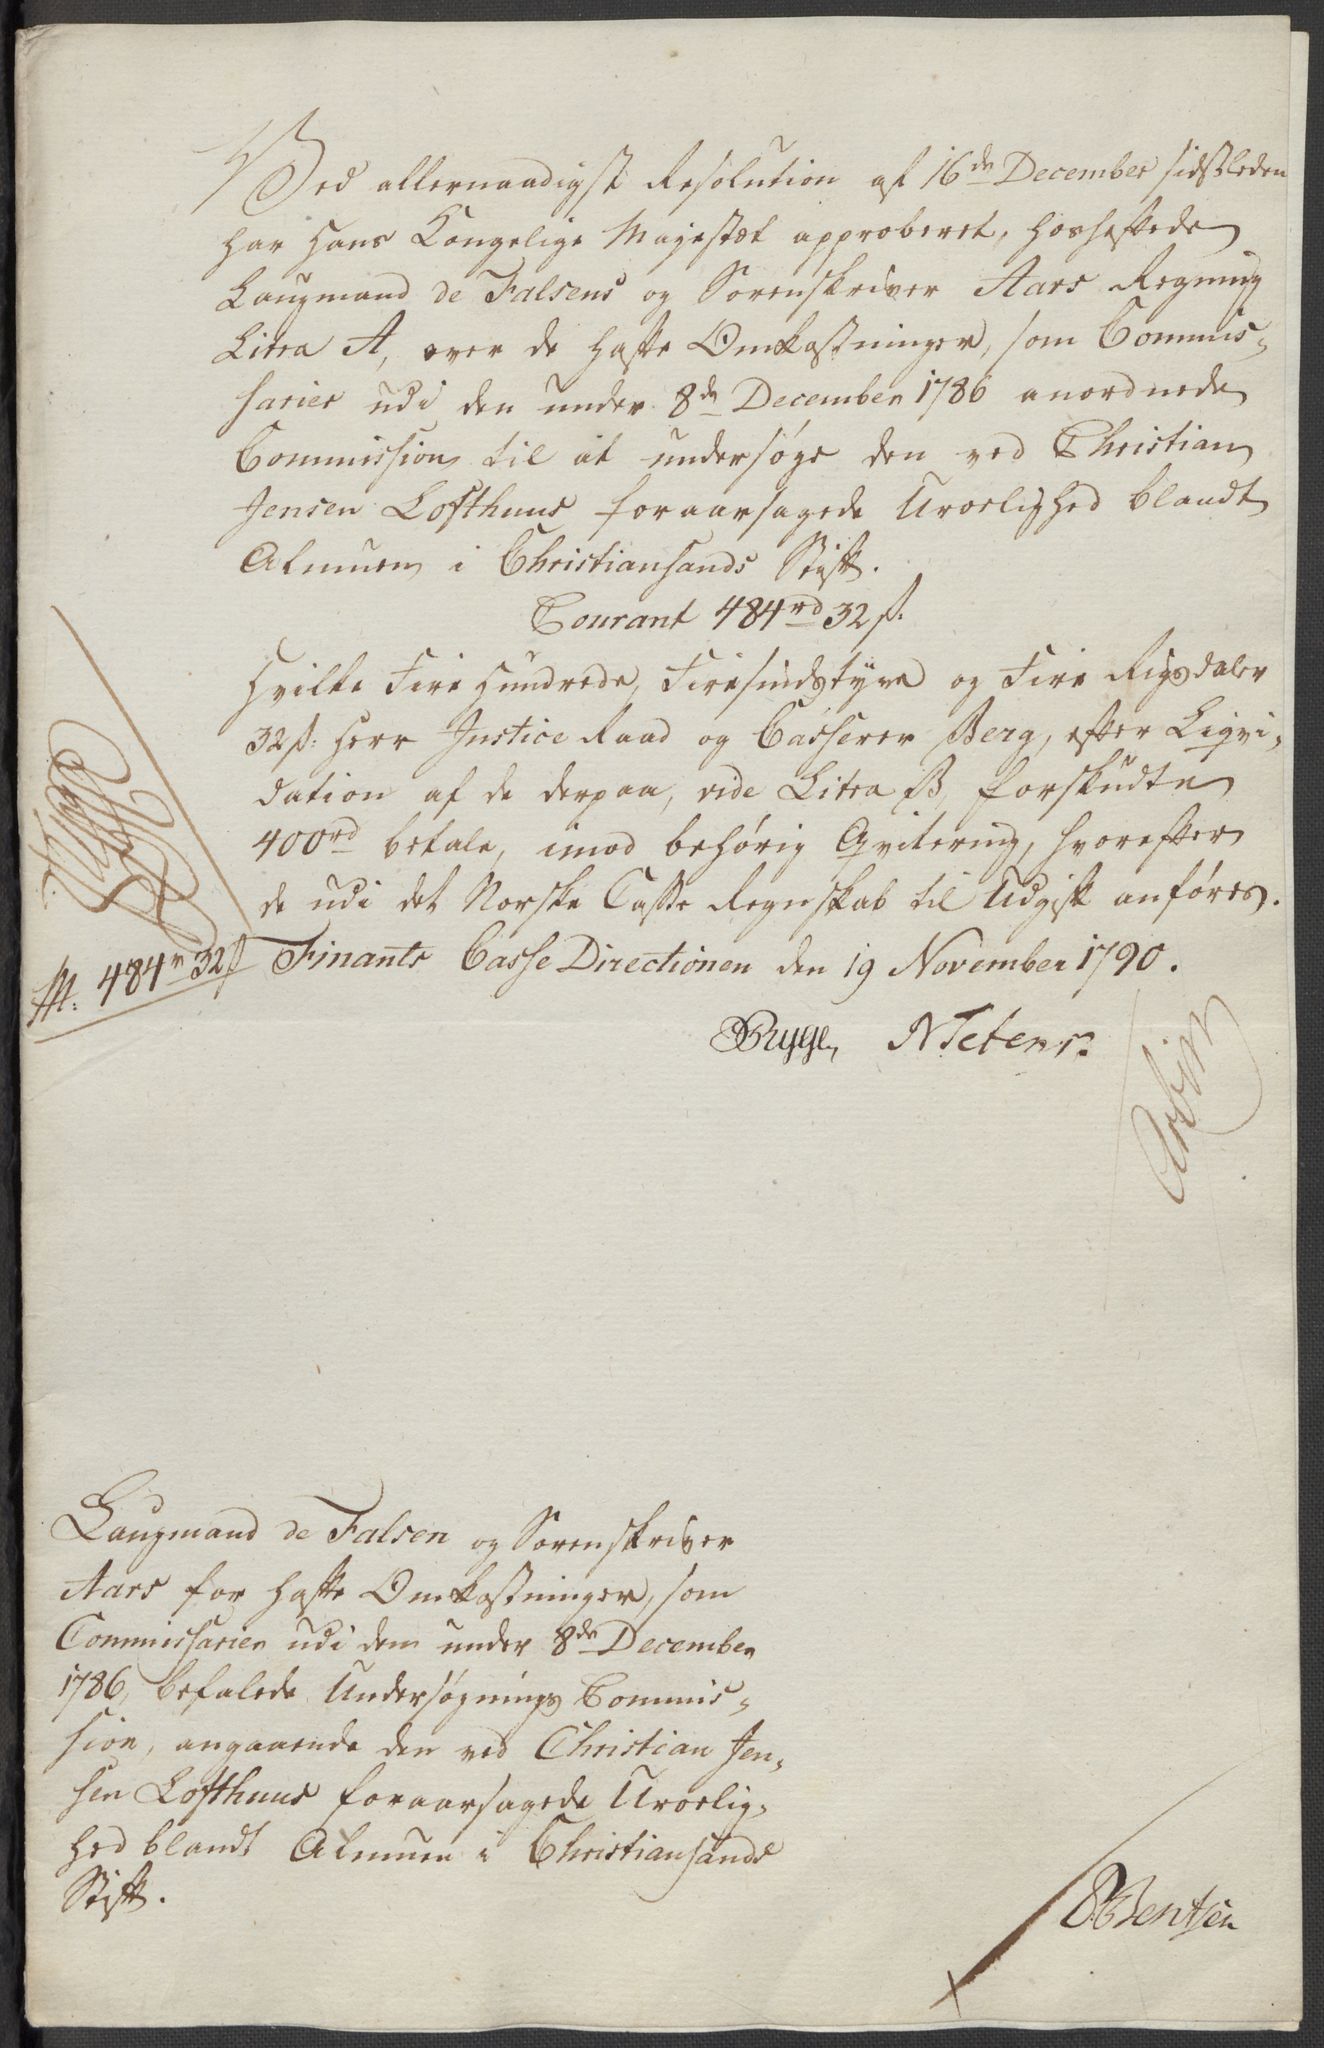 Ved allernaadigst Resolution af 16de December sidstleden
har Hans Kongelige Majestæt approberet, hosheftede
Laugmand de Falsens og Sorenskriver Aars Regning
Litra A, over de hafte Omkostninger, som Commis-
sarier udi den under 8de December 1786 anordnede
Commission til at undersøge den ved Christian
Jensen Lofthuus foraarsagede Uroelighed blandt
Almuen i Christiansands Stift.
Courant 484rd 32 ß.
Hvilke Fire Hundrede, Firesindstyve og Fire Rigsdaler
32 ß: Herr Justice Raad og Casserer Berg, efter Liqvi-
dation af de derpaa, vide Litra B, forskudte
400rd betale, imod behørig Qvitering, hvorefter
de udi det Norske Casse Regnskab til Udgift anføres.
Finants Casse Directionen den 19 November 1790.
M. 484r 32 ß
Rygge, NTetens.
Laugmand de Falsen og Sorenskriver
Aars for hafte Omkostninger, som
Commissarier udi dem under 8de December
1786, befalede Undersøgnings Commis-
sion, angaaende den ved Christian Jen-
sen Lofthuus foraarsagede Uroelig-
hed blandt Almuen i Christiansands
Stift.
Bentsen